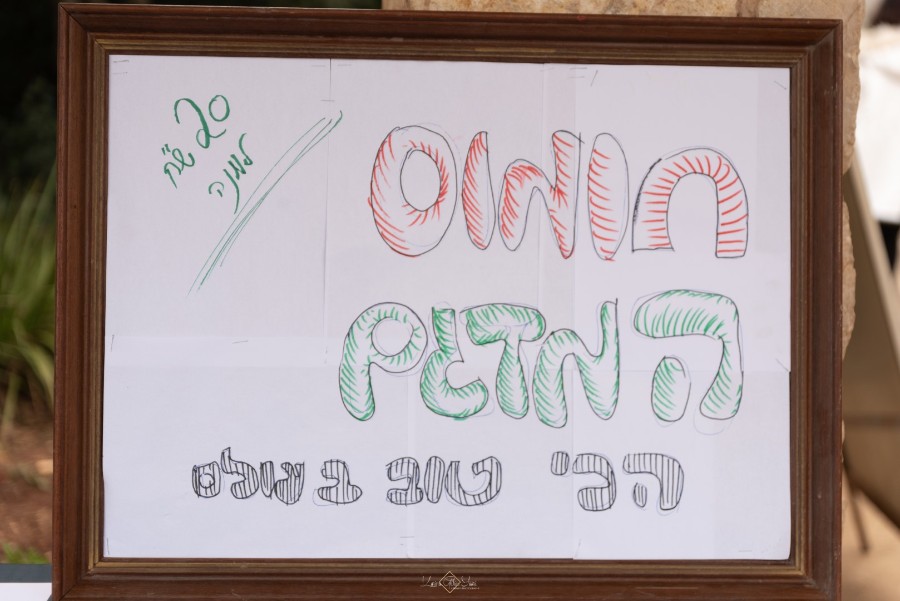 20 ש"ח
למנה
חומוס
המדגם
הכי טוב בעולם